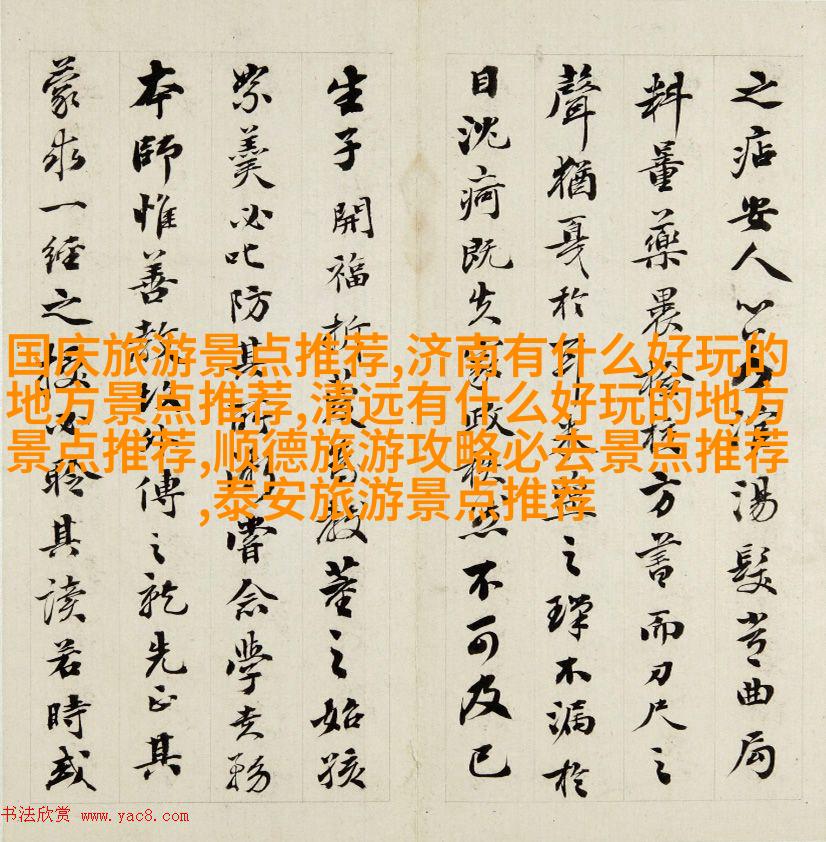 之痁安人湯髮曲局
料量藥裹檢校方書而刀尺之
聲猶戛於耳之不漏於
目沈痾既失家政秩然不可及已
生子開福教之始孩
羹必叱防其嘗念學貴務
本師惟善教以外傅之就先正其
蒙求一經之授必聆其讀若時或
国庆旅游景点推荐,济南有什么好玩的
地方景点推荐,清远有什么好玩的地方
景点推荐,顺德旅游攻略必去景点推荐
,泰安旅游景点推荐
书法欣赏 www.yac8.com